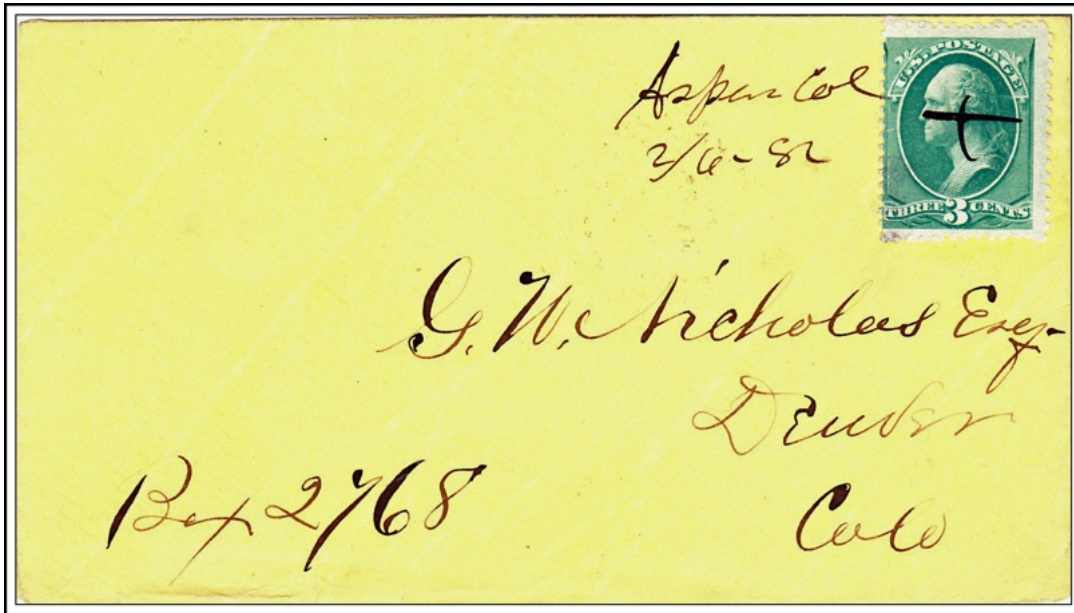 Aspen Col
2/6-82
U.S. POSTAGE
THREE 3 CENTS
G. W. Nicholas Esq-
Denver
Colo
Box 2768